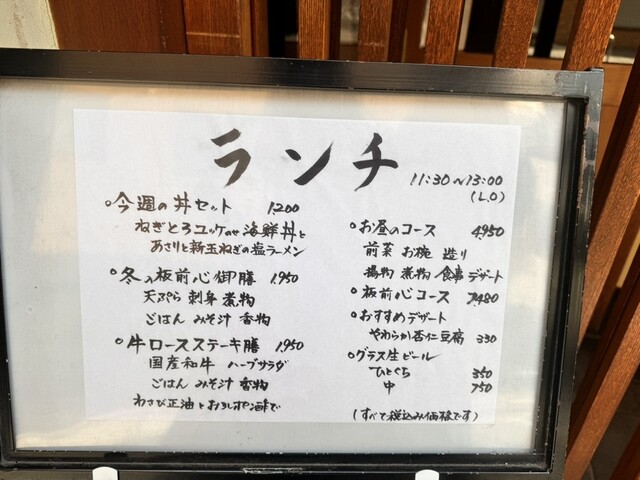 ランチ
11:30～13:00
(L.O)
○今週の丼セット 1,200
ねぎとろユッケのせ海鮮丼と
あさりと新玉ねぎの塩ラーメン
○冬の板前心御膳 1,950
天ぷら 刺身 煮物
ごはん みそ汁 香物
○牛ロースステーキ膳 1,950
国産和牛 ハーブサラダ
ごはん みそ汁 香物
わさび正油とおろしポン酢で
○お昼のコース 4,950
前菜 お椀 造り
揚物 煮物 食事 デザート
○板前心コース 7,480
○おすすめデザート
やわらか杏仁豆腐 330
○グラス生ビール
ひとくち 350
中 750
(すべて税込み価格です)